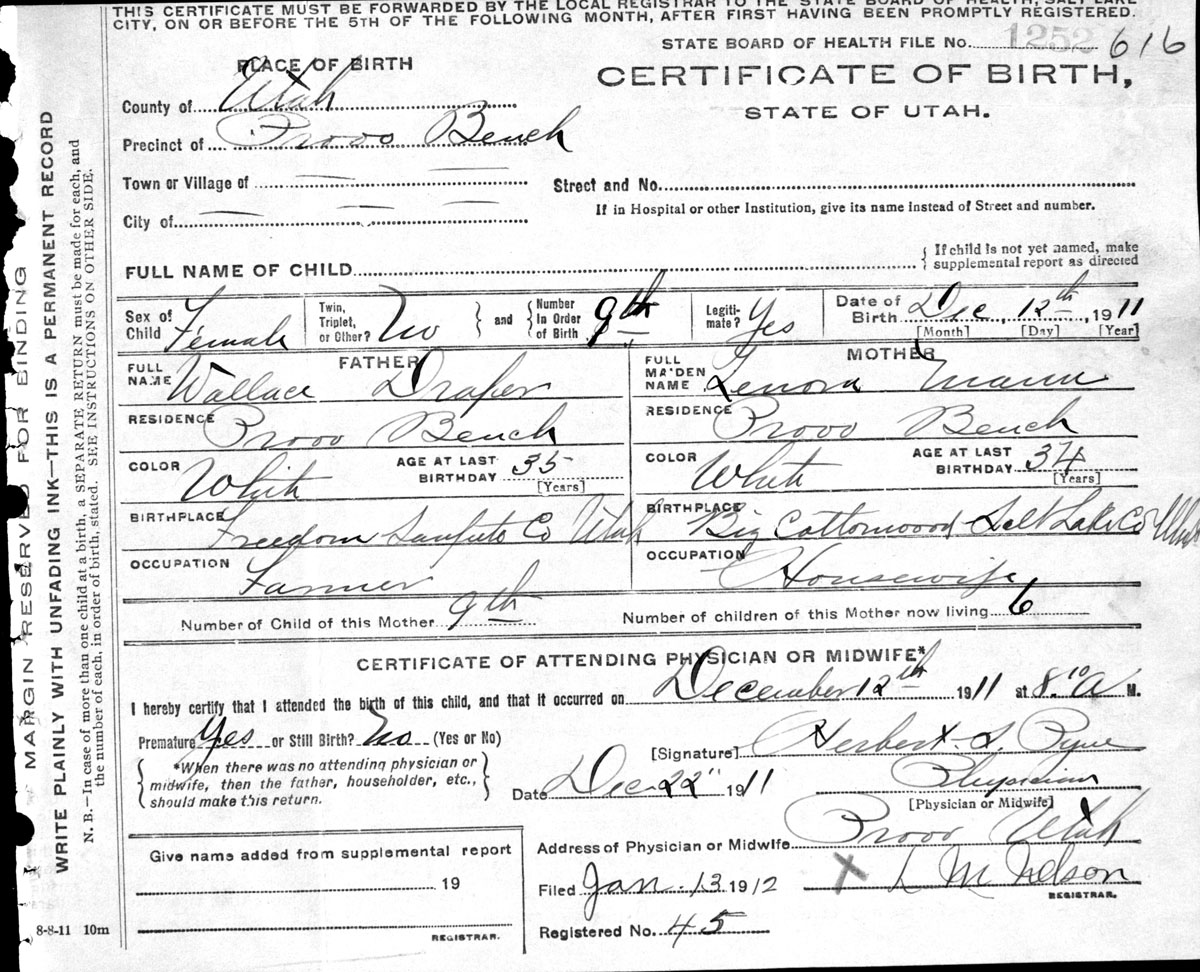 THIS CERTIFICATE MUST BE FORWARDED BY THE LOCAL REGISTRAR TO THE STATE BOARD OF HEALTH, SALT LAKE
CITY, ON OR BEFORE THE 5TH OF THE FOLLOWING MONTH, AFTER FIRST HAVING BEEN PROMPTLY REGISTERED.
STATE BOARD OF HEALTH FILE No. 1252 616
PLACE OF BIRTH
CERTIFICATE OF BIRTH,
STATE OF UTAH.
County of Utah
Precinct of Provo Bench
Town or Village of
Street and No.
City of
If in Hospital or other Institution, give its name instead of Street and number.
FULL NAME OF CHILD
If child is not yet named, make
supplemental report as directed
Sex of Child Female
Twin, Triplet, or Other? No and Number In Order of Birth 9th
Legiti-mate? Yes
Date of Birth Dec, 12th, 1911
[Month] [Day] [Year]
FATHER
FULL NAME Wallace Draper
MOTHER
FULL MAIDEN NAME Lenora Mann
RESIDENCE Provo Bench
RESIDENCE Provo Bench
COLOR White AGE AT LAST BIRTHDAY 35 [Years]
COLOR White AGE AT LAST BIRTHDAY 34 [Years]
BIRTHPLACE Freedom Sanpete Co Utah
BIRTHPLACE Big Cottonwood Salt Lake Co Utah
OCCUPATION Farmer
OCCUPATION Housewife
Number of Child of this Mother 9th
Number of children of this Mother now living 6
CERTIFICATE OF ATTENDING PHYSICIAN OR MIDWIFE*
I hereby certify that I attended the birth of this child, and that it occurred on December 12th 1911 at 8.10 A M.
Premature Yes or Still Birth? No (Yes or No)
[Signature] Herbert S. Pyne
*When there was no attending physician or
midwife, then the father, householder, etc.,
should make this return.
Date Dec 22" 1911
Physician
[Physician or Midwife]
Address of Physician or Midwife Provo Utah
Give name added from supplemental report
19
REGISTRAR.
Filed Jan. 13 1912 X L M Nelson
REGISTRAR.
Registered No. 45
8-8-11 10m
MARGIN RESERVED FOR BINDING
WRITE PLAINLY WITH UNFADING INK—THIS IS A PERMANENT RECORD
N. B.—In case of more than one child at a birth, a SEPARATE RETURN must be made for each, and
the number of each, in order of birth, stated. SEE INSTRUCTIONS ON OTHER SIDE.